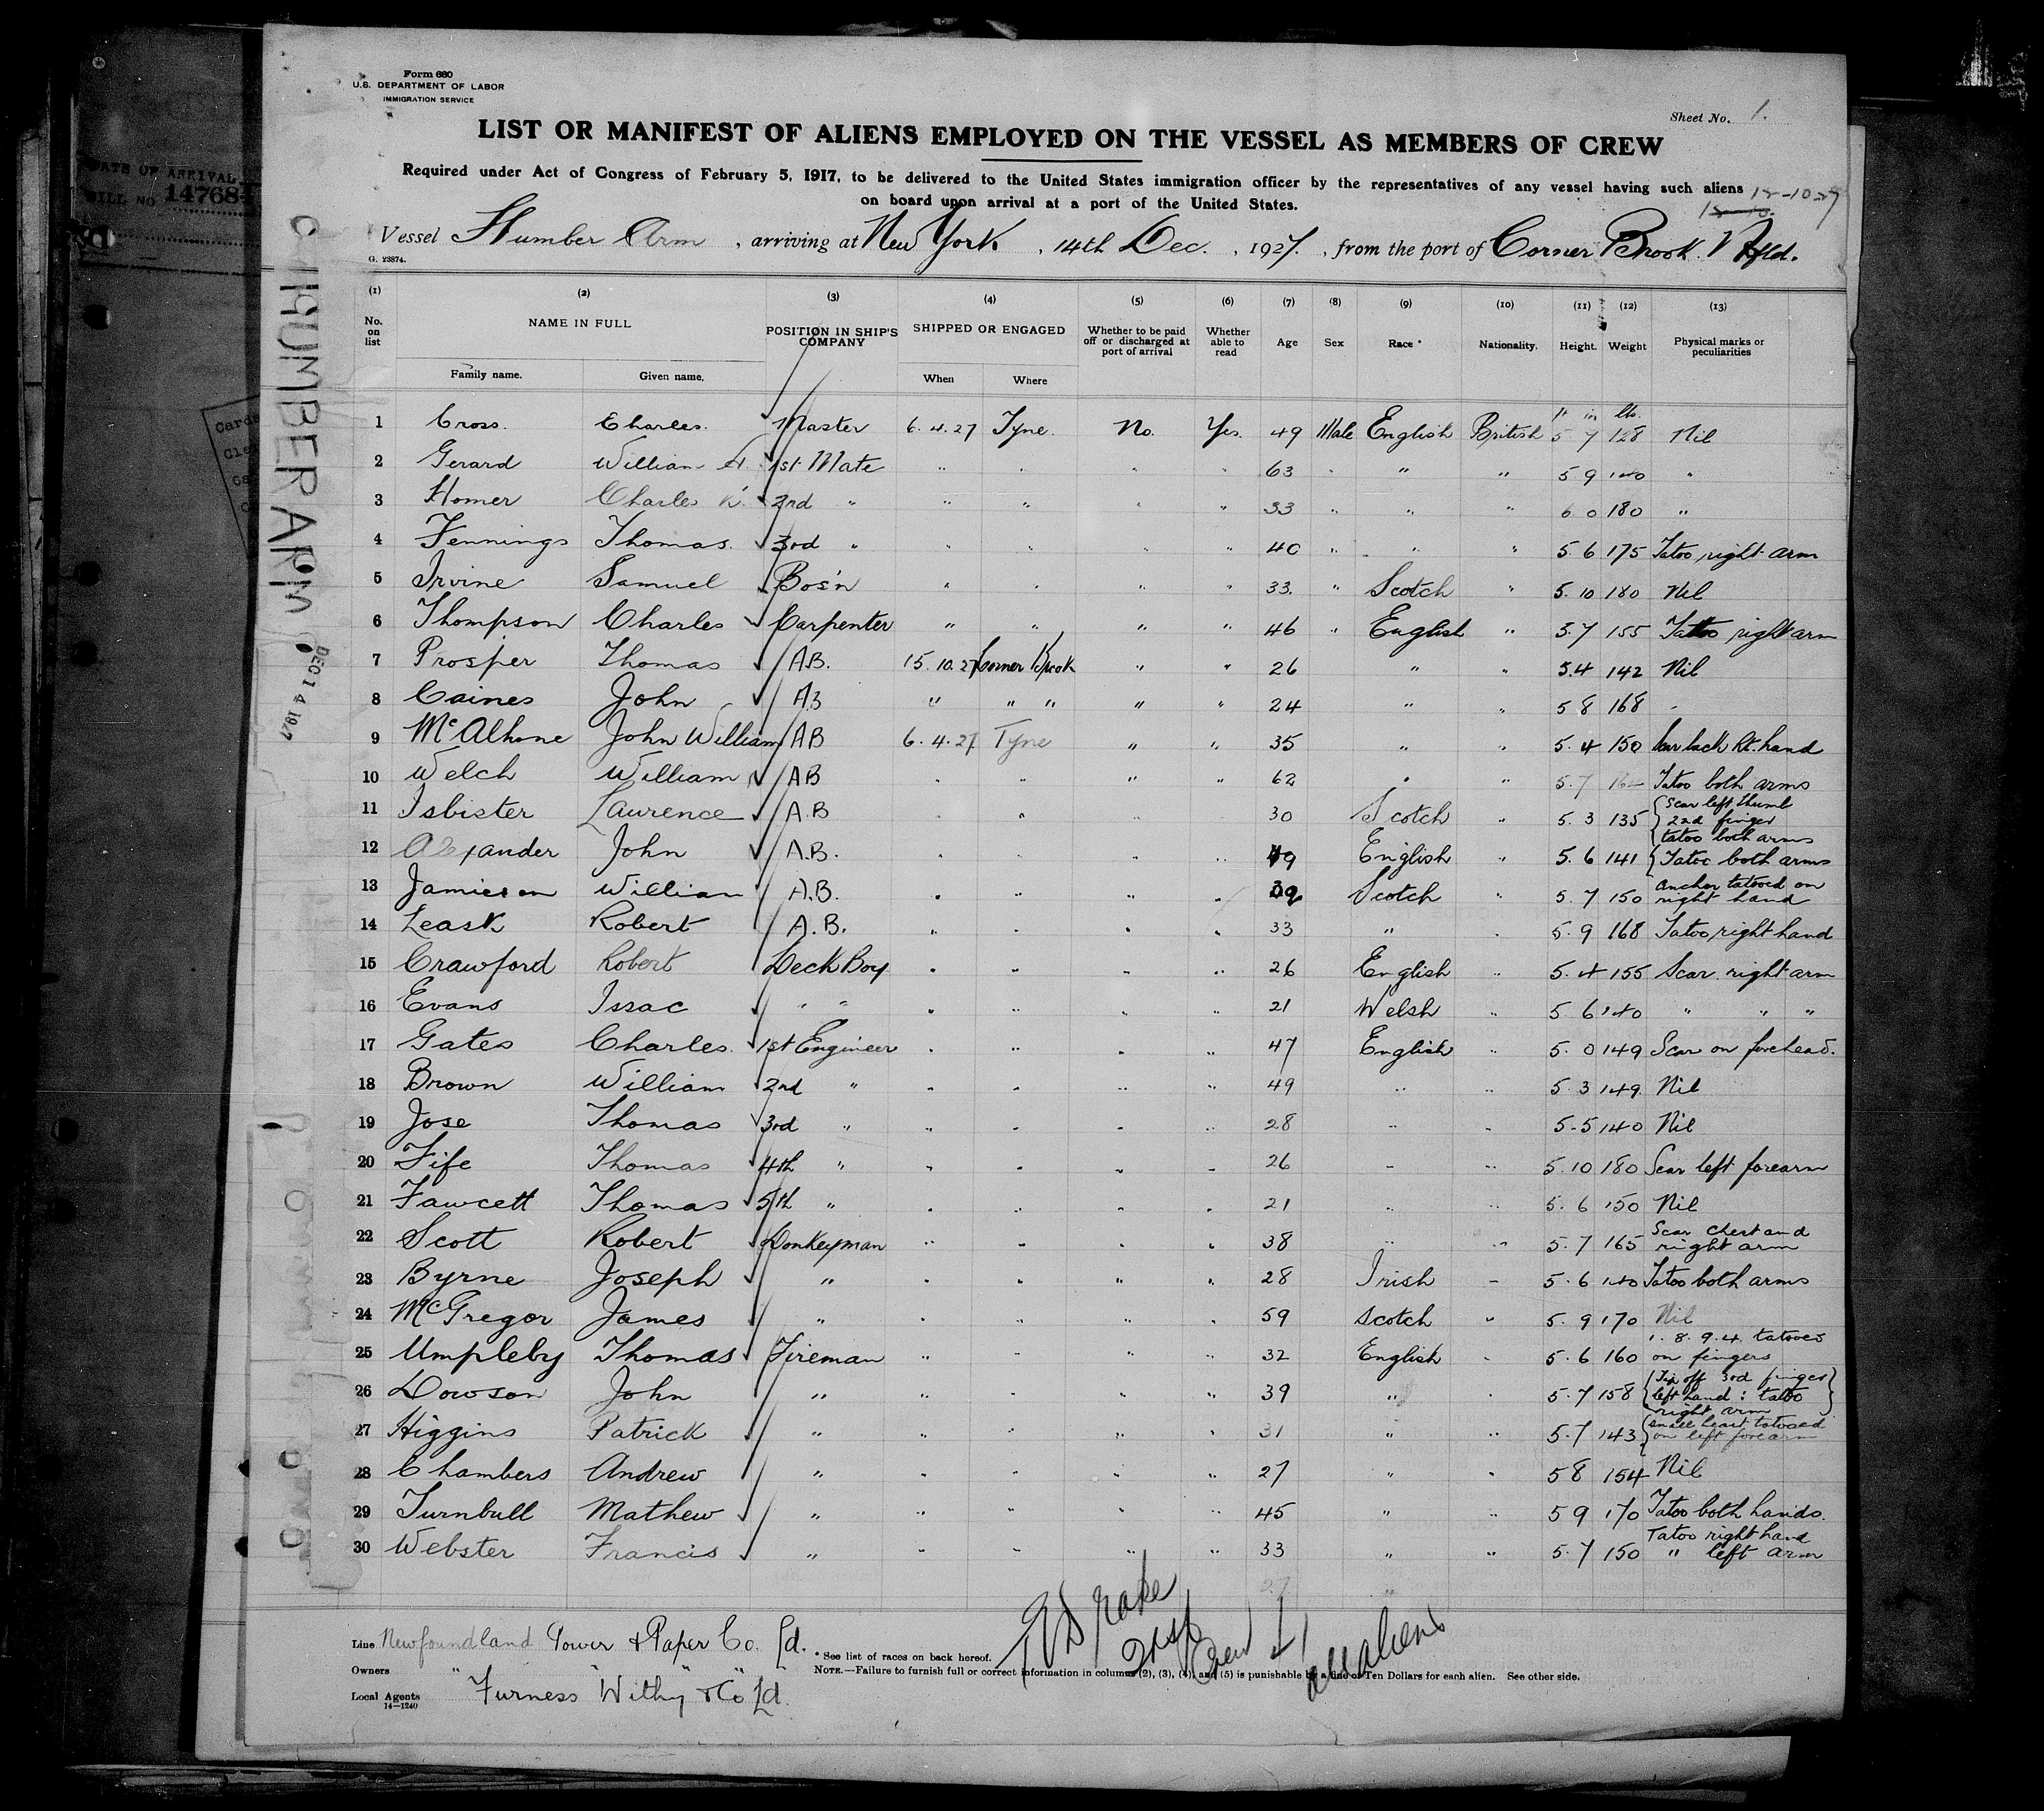 Form 680
U.S. DEPARTMENT OF LABOR
IMMIGRATION SERVICE
Sheet No. 1.
LIST OR MANIFEST OF ALIENS EMPLOYED ON THE VESSEL AS MEMBERS OF CREW
Required under Act of Congress of February 5, 1917, to be delivered to the United States immigration officer by the representatives of any vessel having such aliens
on board upon arrival at a port of the United States.
Vessel Humber Arm, arriving at New York, 14th Dec., 1927, from the port of Corner Brook. Nfld.
G. 23874.
DATE OF ARRIVAL
14768
HUMBER ARM
DEC 14 1927
(1) (2) (3) (4) (5) (6) (7) (8) (9) (10) (11) (12) (13)
No. on list NAME IN FULL POSITION IN SHIP'S COMPANY SHIPPED OR ENGAGED Whether to be paid off or discharged at port of arrival Whether able to read Age Sex Race* Nationality. Height. Weight Physical marks or peculiarities
Family name. Given name. When Where
ft in lbs.
1 Cross. Charles. Master 6.4.27 Tyne. No. Yes. 49 Male English British 5 7 128 Nil
2 Gerard William 1st Mate " " " " 63 " " " 5 9 140 "
3 Homer Charles 2nd " " " " " 33 " " " 6 0 180 "
4 Jennings Thomas. 3rd " " " " " 40 " " " 5 6 175 Tatoo right arm
5 Irvine Samuel Bos'n " " " " 33. " Scotch " 5. 10 180 Nil
6 Thompson Charles Carpenter " " " " 46 " English " 5.7 155 Tattoo right arm
7 Prosper Thomas A.B. 15.10.27 Corner Brook " " 26 " " 5.4 142 Nil
8 Caines John AB " " " " " 24 " " 5 8 168 "
9 McAlhone John William AB 6.4.27 Tyne " " 35 " " 5. 4 150 Scar back Rt. hand
10 Welch William AB " " " " 62 " " 5. 7 Tatoo both arms
11 Isbister Laurence A.B " " " " 30 Scotch " 5. 3 135 Scar left thumb
2nd finger
tatoo both arms
12 Alexander John A.B. " " " " 49 English " 5. 6 141 Tatoo both arms
13 Jamieson William A.B. " " " " 32 Scotch " 5. 7 150 anchor tatooed on
right hand
14 Leask Robert A.B. " " " " 33 " " 5. 9 168 Tatoo right hand
15 Crawford Robert Deck Boy " " " " 26 English " 5. 4 155 Scar right arm
16 Evans Issac " " " " " " 21 Welsh " 5 6 140 " " "
17 Gates Charles. 1st Engineer " " " " 47 English " 5. 0 149 Scar on forehead.
18 Brown William 2nd " " " " " 49 " " 5. 3 149. Nil
19 Jose Thomas 3rd " " " " " 28 " " 5-5 140 Nil
20 Fife Thomas 4th " " " " " 26 " " 5. 10 180 Scar left forearm
21 Fawcett Thomas 5th " " " " " 21 " " 5. 6 150 Nil
22 Scott Robert Donkeyman " " " " 38 " " 5. 7 165 Scar chest and
right arm
23 Byrne Joseph " " " " " 28 Irish " 5. 6 140 Tatoo both arms
24 McGregor James " " " " " 59 Scotch " 5. 9 170 Nil
25 Umpleby Thomas Fireman " " " " 32 English " 5. 6 160 1. 8. 9. 4. tatooes
on fingers
26 Dowson John " " " " " 39 " " 5. 7 158 Tip off 3rd finger
left hand: tattoo
right arm
27 Higgins Patrick " " " " " 31 " " 5. 7 143 small heart tatooed
on left forearm
28 Chambers Andrew " " " " " 27 " " 5 8 154 Nil
29 Turnbull Mathew " " " " " 45 " " 5 9 170 Tatoo both hands.
30 Webster Francis " " " " " 33 " " 5. 7 150 Tatoo right hand
" left arm
27 "
Line Newfoundland Power & Paper Co. Ld.
* See list of races on back hereof.
NOTE.—Failure to furnish full or correct information in columns (2), (3), (4), and (5) is punishable by a fine of Ten Dollars for each alien. See other side.
Owners " " "
Local Agents Furness Withy & Co Ld.
14—1240
Drake
Insp
Crew
all aliens